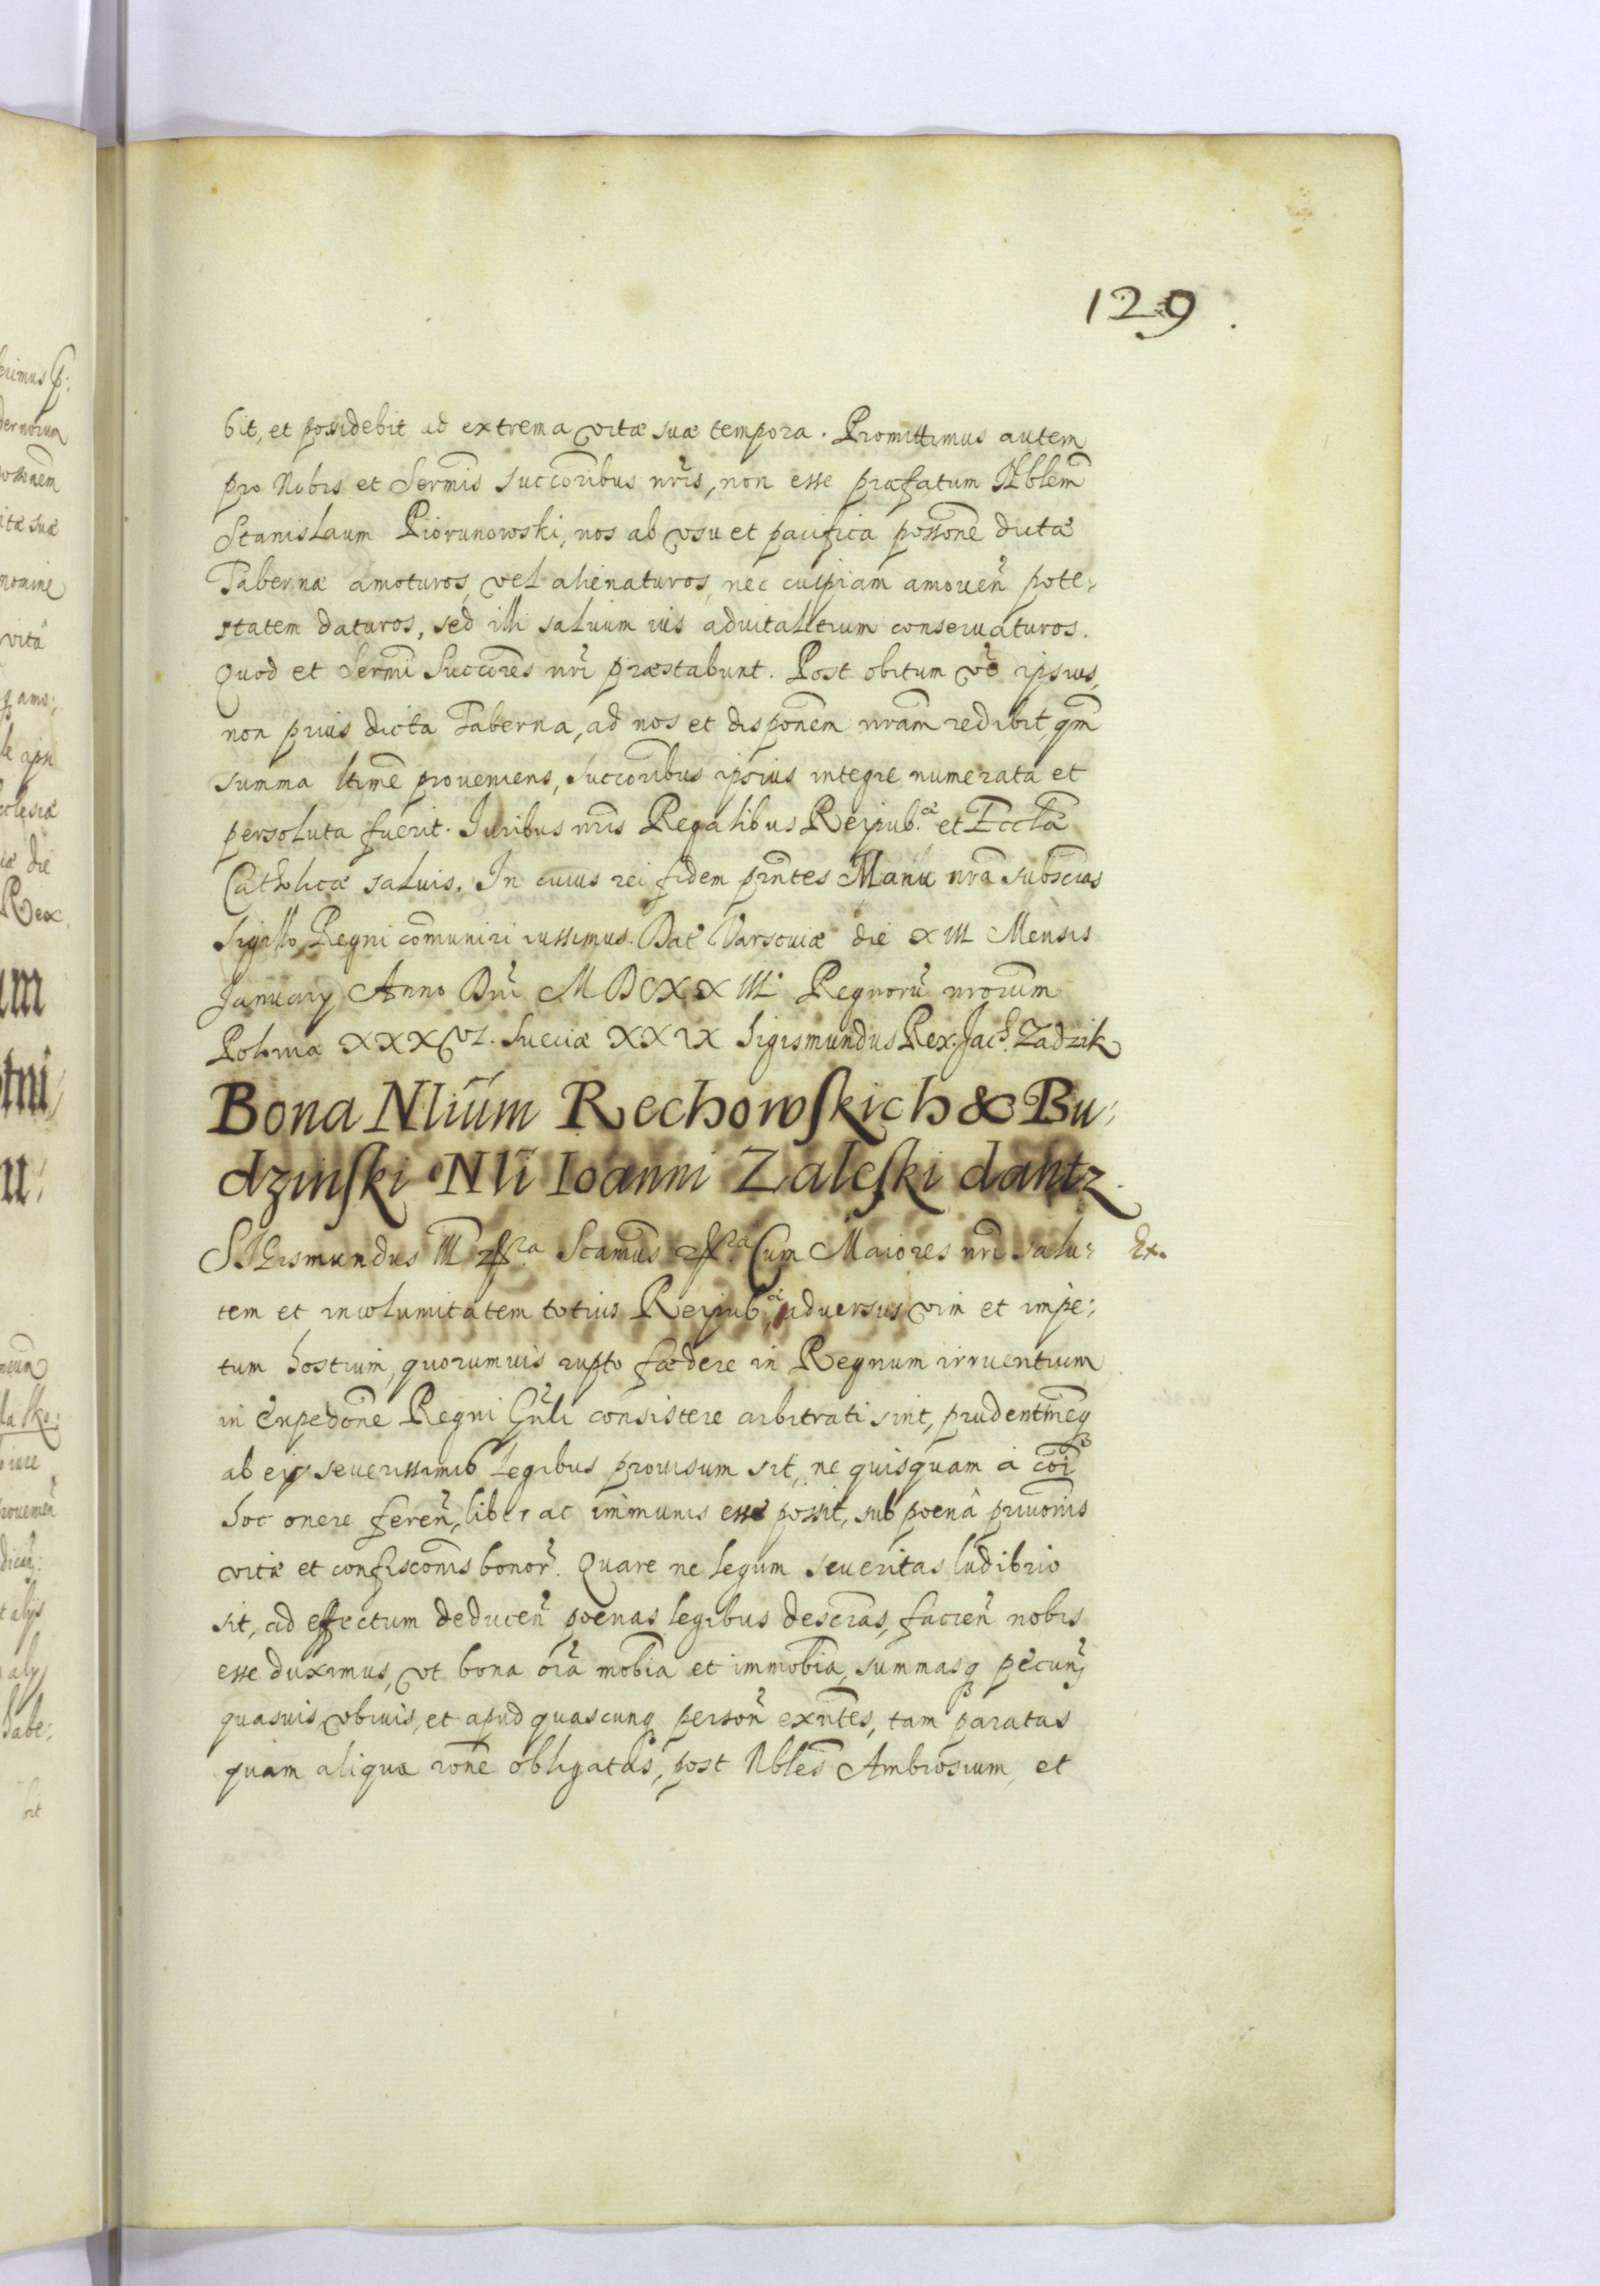 129.
bit, et possidebit ad extrema vitæ suæ tempora. Promittimus autem
pro Nobis et Sermis succoribus nris, non esse præfatum Nblem
Stanislaum Piorunowski, nos ab vsu et pacifica possone dictæ
Tabernæ amoturos, vel alienaturos, nec cuipiam amouen pote:
statem daturos, sed illi saluum ius aduitalitium conseruaturos.
Quod et Sermi Succores nri præstabunt. Post obitum vo ipsius,
non prius dicta Taberna, ad nos et disponem nram redibit, qm
summa ltime proueniens, succoribus ipsius integre numerata et
persoluta fuerit. Iuribus nris Regalibus Reipub. et Eccla
Catholicæ saluis. In cuius rei fidem pntes Manu nra subscras
Sigillo Regni comuniri iussimus. Dat Varsouiæ die XIII Mensis
January Anno Dni MDCXXIII Regnoru nrorum
Poloniæ XXXVI. Sueciæ XXIX Sigismundus Rex. Jac. Zadzik
Bona Nlium Rechowskich & Bu:
dzinski Nli Ioanni Zaleski dantz.
SIGismundus III Scamus Cum Maiores nri salu: Ex.
tem et incolumitatem totius Reipub. aduersus vim et impe:
tum hostium, quorumuis rupto fœdere in Regnum irruentium
in Expedone Regni Gnli consistere arbitrati sint, prudentmeq
ab eis seuerissimis legibus prouisum sit, ne quisquam à coi
hoc onere feren, liber ac immunis esse possit, sub poena priuonis
vitæ et confisconis bonor. Quare ne legum seueritas ludibrio
sit, ad effectum deducen poenas legibus descras, facien nobis
esse duximus, vt bona oia mobia et immobia, summasq pecun
quasuis, vbiuis, et apud quascunq person exntes, tam paratas
quam aliqua rone obligatas, post Nbles Ambrosium, et